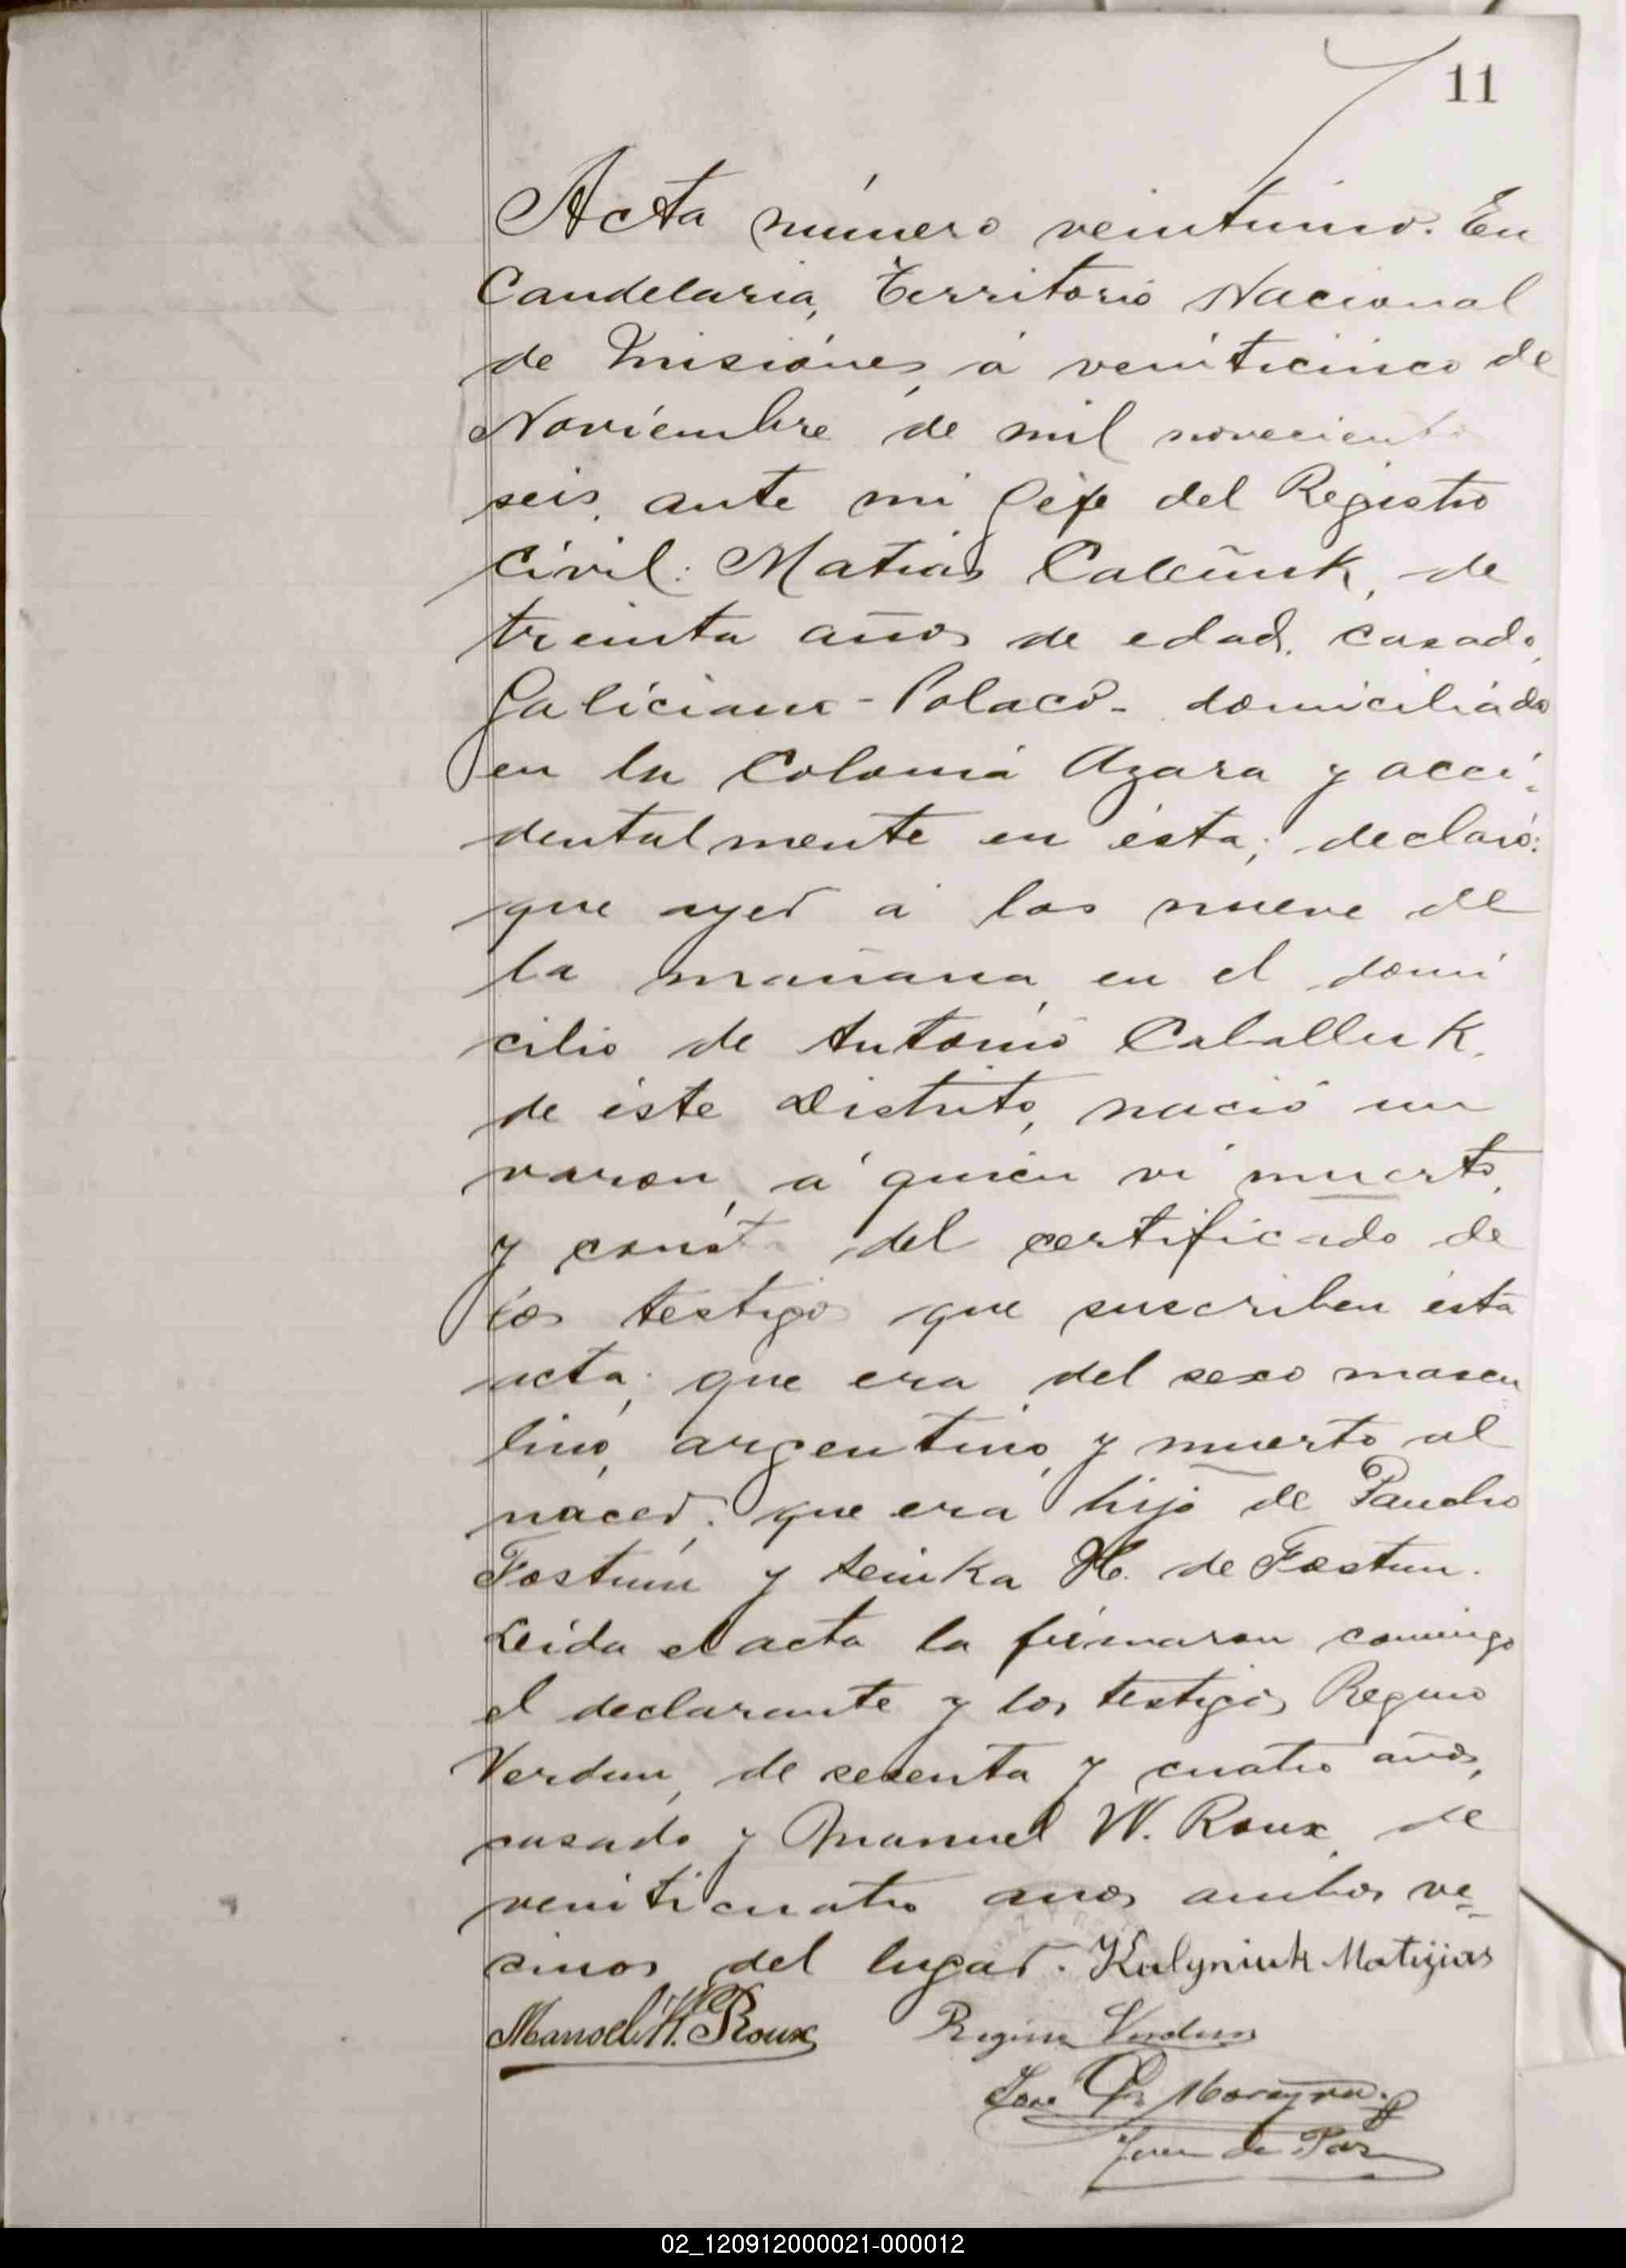 11
Acta número veintiuno. En
Candelaria, Territorio Nacional
de Misiónes, á veinticinco de
Noviembre de mil novecientos
seis, ante mi Gefe del Registro
Civil: Matias Calciñuk, de
treinta años de edad, casado,
Galiciano-Polaco- domiciliado
en la Colonia Azara y acci-
dentalmente en ésta; declaró:
que ayer á las nueve de
la mañana, en el domi
cilio de Antonio Caballuk,
de éste Distrito, nació un
varon, á quién vi muerto,
y consta del certificado de
los testigos que suscriben ésta
acta; que era del sexo mascu
lino, argentino, y muerto al
nacer; que era hijo de Pancho
Fostum y Seinka H. de Fostum.
Leida el acta la firmaron conmigo
el declarante y los testigos Regino
Verdun, de sesenta y cuatro años,
casado y Manuel W. Roux, de
veinticuatro anos ambos ve-
cinos del lugar. Kalyniuk Matijas
Manoel W. Roux Regino Verdun
Jose Moreyra
Juez de Paz
02_120912000021-000012